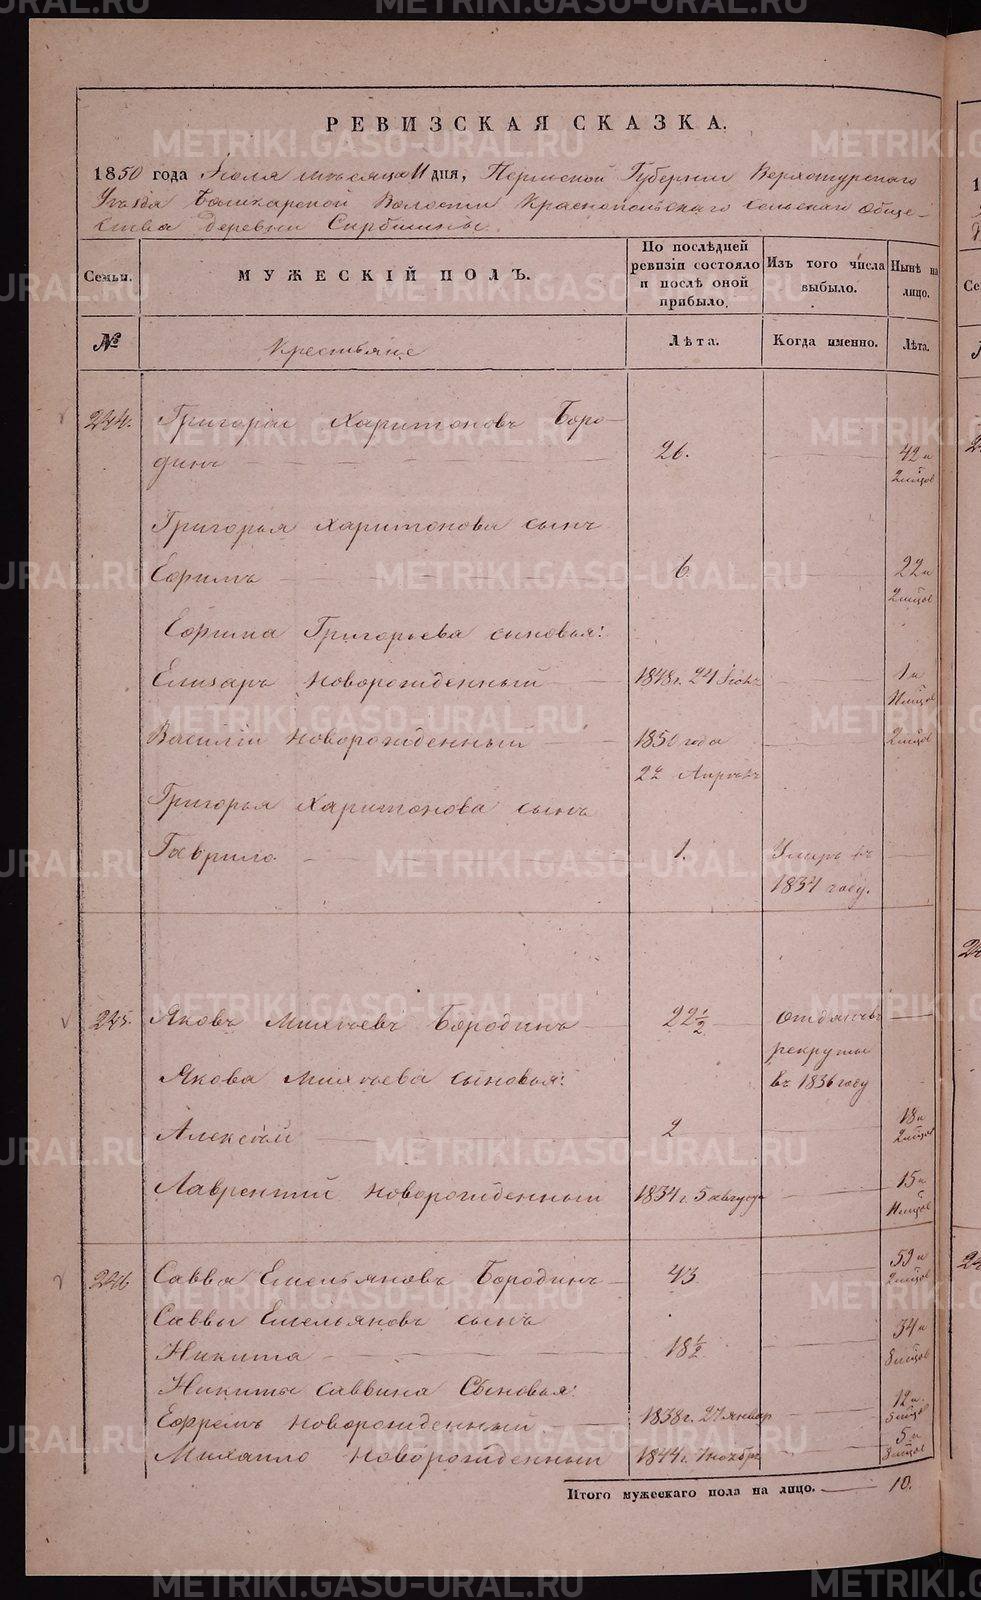 РЕВИЗСКАЯ СКАЗКА.
1850 года Июля месяца 11 дня, Пермской Губернии Верхотурского
Уезда Башкарской Волости Краснопольского сельскаго обще-
ства деревни
Семьи.
МУЖЕСКІЙ ПОЛЪ.
По послѣдней ревизіи состояло и послѣ оной прибыло.
Изъ того числа выбыло.
Нынѣ на лицо.
№
Крестьяне
Лѣта.
Когда именно.
Лѣта.
244. Григорій Харитоновъ Боро-
динъ 26. 42 и 2 мѣсяц
Григорья Харитонова сынъ
Ефимъ 6 22 и 2
Ефима Григорьева сыновья:
Елизаръ новорожденный 1848 г. 24 1 и 11
Василій новорожденный 1850 года 2
22 Апрѣля
Григорья Харитонова сынъ
Гаврило 1. Умеръ въ
1834 году.
245. Яковъ Михѣевъ Бородинъ 22 1/2 отданъ въ
рекруты
Якова Михѣева сыновья: въ 1836 году
Алексѣй 2 18 и 2
Лаврентій новорожденный 1834 г. 5 августа 15 и 11
246 Савва Емельяновъ Бородинъ 43 59 и 2
Саввы Емельяновъ сынъ
Никита 18 1/2 34 и 8
Никиты Саввина Сыновья:
Ефремъ новорожденный 1838 г. 27 январ 12 и 5
Михаило новорожденный 1844 г. 7 ноябр 5 и 8
Итого мужескаго пола на лицо. 10.
METRIKI.GASO-URAL.RU